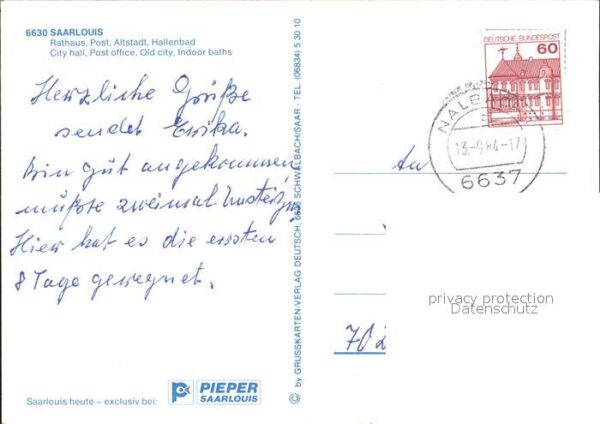 6630 SAARLOUIS
Rathaus, Post, Altstadt, Hallenbad
City hall, Post office, Old city, Indoor baths
Herzliche Grüße
sendet Erika.
Bin gut angekommen
mußte zweimal Umsteigen
Hier hat es die ersten
8 Tage geregnet.
Saarlouis heute – exclusiv bei:
PIEPER
SAARLOUIS
© by GRUSSKARTEN-VERLAG DEUTSCH, SCHWALBACH/SAAR - TEL. (06834) 5 30 10
DEUTSCHE BUNDESPOST
60
NALB
13.-9.84-17
6637
An
702
privacy protection
Datenschutz